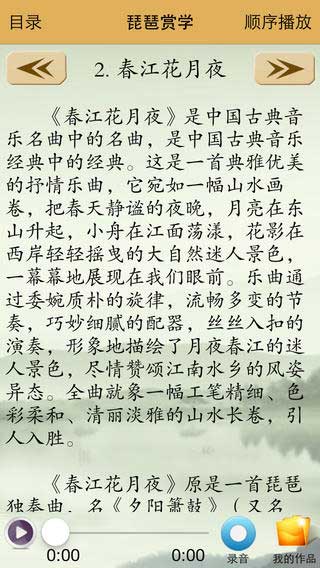 目录 琵琶赏学 顺序播放
2. 春江花月夜
《春江花月夜》是中国古典音
乐名曲中的名曲，是中国古典音乐
经典中的经典。这是一首典雅优美
的抒情乐曲，它宛如一幅山水画
卷，把春天静谧的夜晚，月亮在东
山升起，小舟在江面荡漾，花影在
西岸轻轻摇曳的大自然迷人景色，
一幕幕地展现在我们眼前。乐曲通
过委婉质朴的旋律，流畅多变的节
奏，巧妙细腻的配器，丝丝入扣的
演奏，形象地描绘了月夜春江的迷
人景色，尽情赞颂江南水乡的风姿
异态。全曲就象一幅工笔精细、色
彩柔和、清丽淡雅的山水长卷，引
人入胜。
《春江花月夜》原是一首琵琶
独奏曲，名《夕阳箫鼓》（又名
0:00 0:00 录音 我的作品